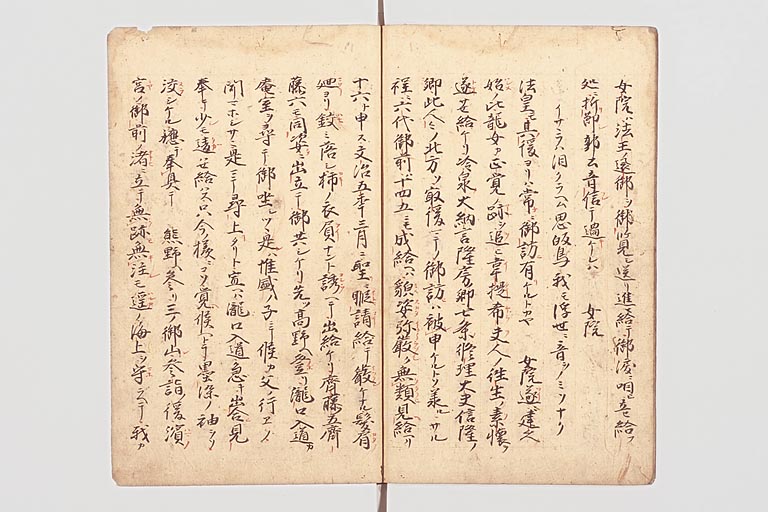 女院ハ法王ノ還御ヲ御覧シ送リ進給テ御涙ニ咽ヒ立給フ
処ニ折節郭公音信テ過ケレハ　女院
イサヽラハ泪クラヘム思郭鳥我モ浮世ニ音ヲノミソナク
法皇モ其後ヨリハ常ニ御訪有ケルトカヤ　女院遂ニ建久ノ
始比龍女カ正覚ノ跡ヲ追ヒ韋提希夫人ノ往生ノ素懐ヲ
遂サセ給ケリ冷泉大納言隆房卿七条修理大夫信隆ノ
卿此人々ノ北方ソ最後マテノ御訪ハ被申ケルトソ承ルサル
程ニ六代御前十四五ニモ成給ヘハ貌姿弥厳ク無類見給ケリ
十六ト申ス文治五年三月ニ聖ニ暇請給テ厳ケナル髪肩
廻ヨリ鋏ミ落シ柿ノ衣負ナント誘ヘテ出給ケリ齋藤五齋
藤六モ同姿ニ出立テ御共シケリ先ツ高野ヘ登リ瀧口入道カ
庵室ヲ尋テ御坐シツヽ是ハ惟盛カ子ニテ候カ父ノ行エノ
聞マホシサニ是マテ尋上タリト宣ヘハ瀧口入道急キ出合見
奉ルニ少モ違セ給ハス只今ノ様ニコソ覚候ヘトテ墨染ノ袖ヲソ
沒シケル軈テ奉具テ　熊野参リ三ノ御山参詣ノ後濱ノ
宮ノ御前ノ渚ニ立テ無跡無注モ遥ノ海上ヲ守ラヘテ我カ